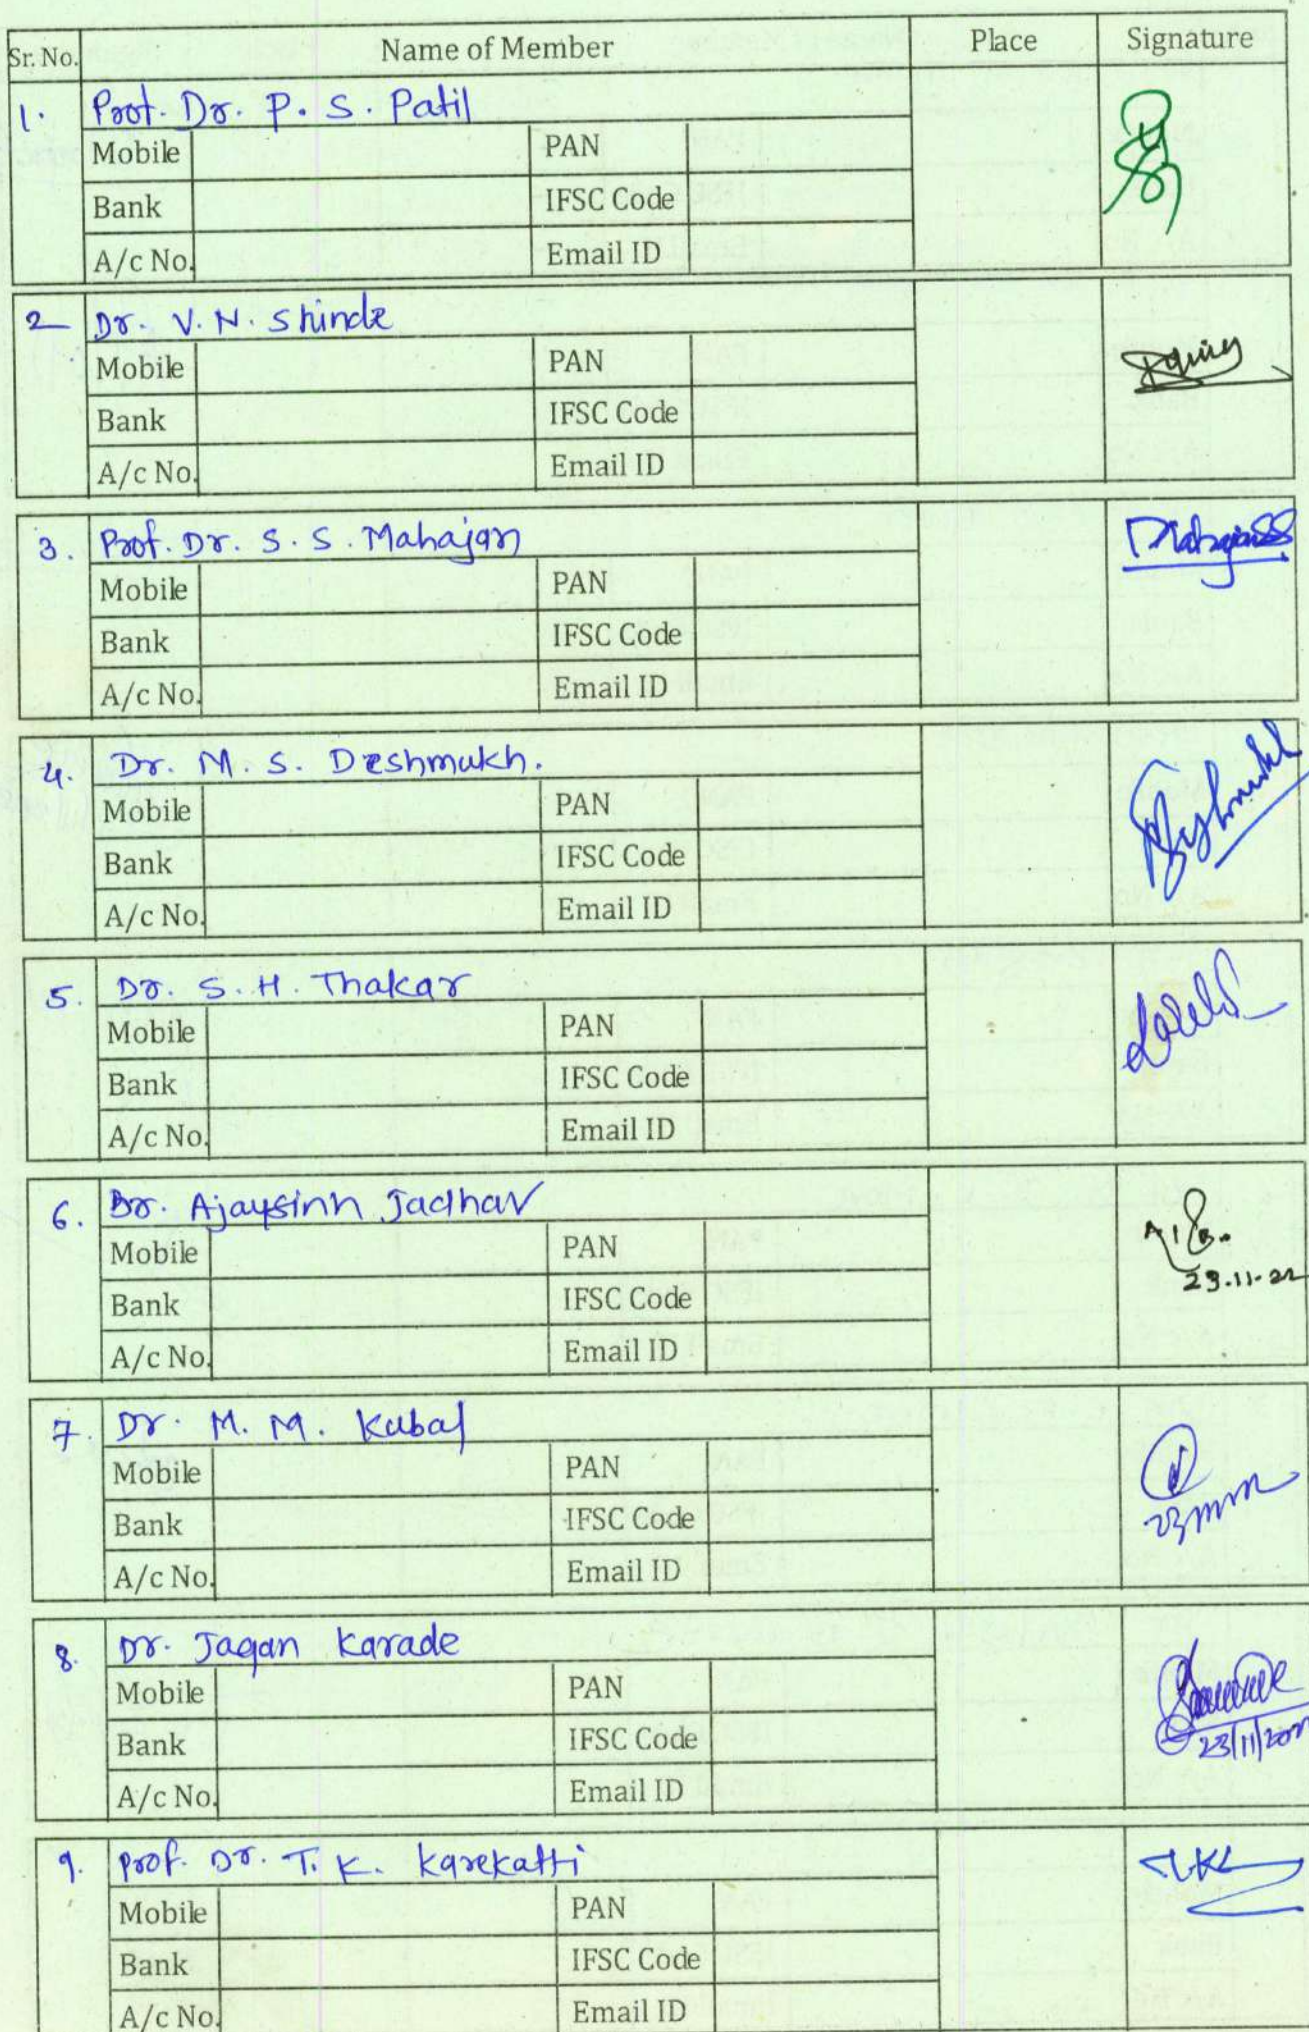 Sr. No. Name of Member Place Signature
1. Prof. Dr. P. S. Patil
Mobile PAN
Bank IFSC Code
A/c No. Email ID
2 Dr. V. N. Shinde
Mobile PAN
Bank IFSC Code
A/c No. Email ID
3. Prof. Dr. S. S. Mahajan MahajanSS
Mobile PAN
Bank IFSC Code
A/c No. Email ID
4. Dr. M. S. Deshmukh. Deshmukh
Mobile PAN
Bank IFSC Code
A/c No. Email ID
5. Dr. S. H. Thakar
Mobile PAN
Bank IFSC Code
A/c No. Email ID
6. Dr. Ajaysinh Jadhav
Mobile PAN 23.11.22
Bank IFSC Code
A/c No. Email ID
7. Dr. M. M. Kubal
Mobile PAN
Bank IFSC Code
A/c No. Email ID
8. Dr. Jagan Karade
Mobile PAN
Bank IFSC Code 23/11/202
A/c No. Email ID
9. Prof. Dr. T. K. Karekatti
Mobile PAN
Bank IFSC Code
A/c No. Email ID